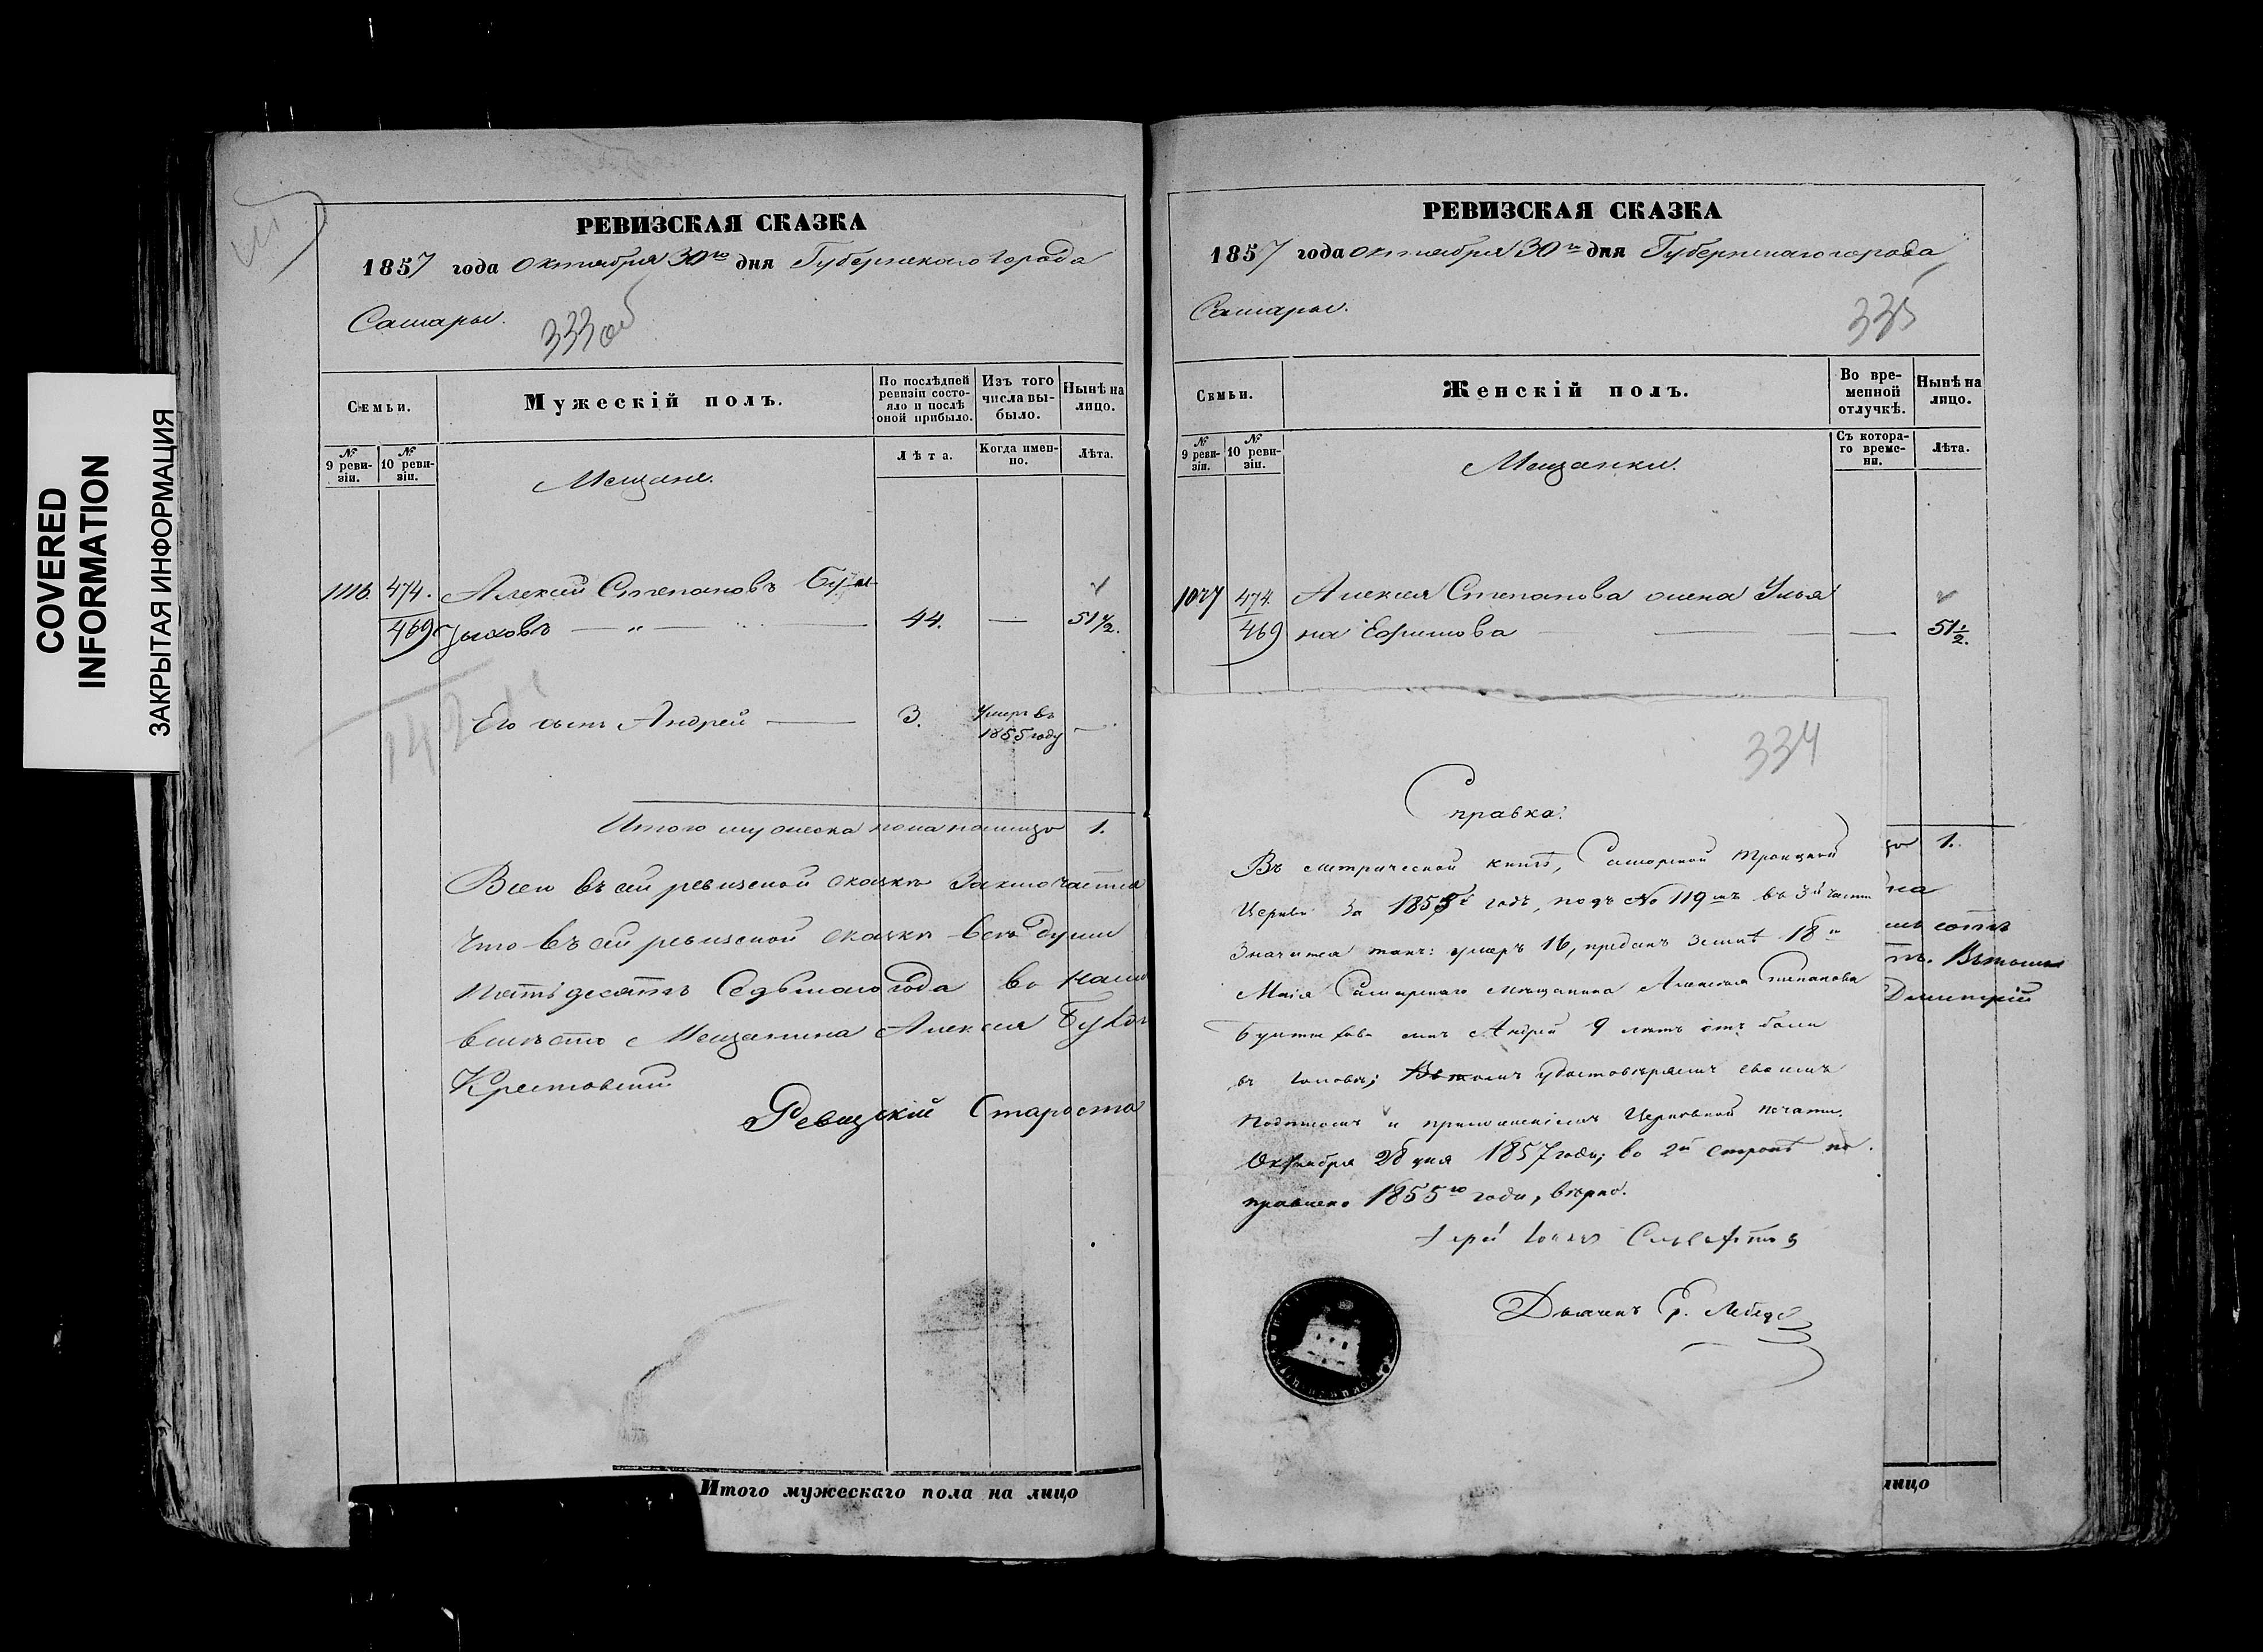 COVERED
INFORMATION
ЗАКРЫТАЯ ИНФОРМАЦИЯ
РЕВИЗСКАЯ СКАЗКА
1857 года Октября 30го дня Губернскаго города
Самары.
333об
Семьи.
Мужескій полъ.
По послѣдней ревизіи состояло и послѣ оной прибыло.
Изъ того числа выбыло.
Нынѣ на лицо.
№ 9 ревизіи.
№ 10 ревизіи.
Мещане.
Лѣта.
Когда именно.
Лѣта.
1116. 474. Алексей Степановъ
469 44. — 51 1/2.
142
Его сынъ Андрей — 3. Умеръ въ 1855 году —
Итого мужеска пола налицо 1.
Всего въ сей ревизской сказке заключается
Что въ сей ревизской сказке все души
Пятьдесятъ Седьмаго года во
вместо Мещанина Алексея
Ревизскій Староста
Итого мужескаго пола на лицо
РЕВИЗСКАЯ СКАЗКА
1857 года октября 30го дня Губернскаго города
Самары.
335
Семьи.
Женскій полъ.
Во временной отлучкѣ.
Нынѣ на лицо.
№ 9 ревизіи.
№ 10 ревизіи.
Мещанки.
Съ котораго времени.
Лѣта.
1027 474. Алексея Степанова жена Улья
469 на Ефимова — — 51 1/2.
334
Справка.
Въ метрической книгѣ, Самарской Троицкой
Церкви за 1855й годъ, подъ № 119мъ въ 3й части
Значится такъ: умеръ 16, преданъ землѣ 18го
Маія Самарскаго мѣщанина Алексея Степанова
сынъ Андрей 9 летъ отъ боли
въ голове; Въ томъ удостовѣряемъ своимъ
подписомъ и приложеніемъ Церковной печати.
Октября 28 дня 1857 года; во 2й строкѣ по
правлено 1855го года, вѣрно.
Іерей Іоаннъ
Дьяконъ Гр. Лебед
1.
Дмитрій
лицо